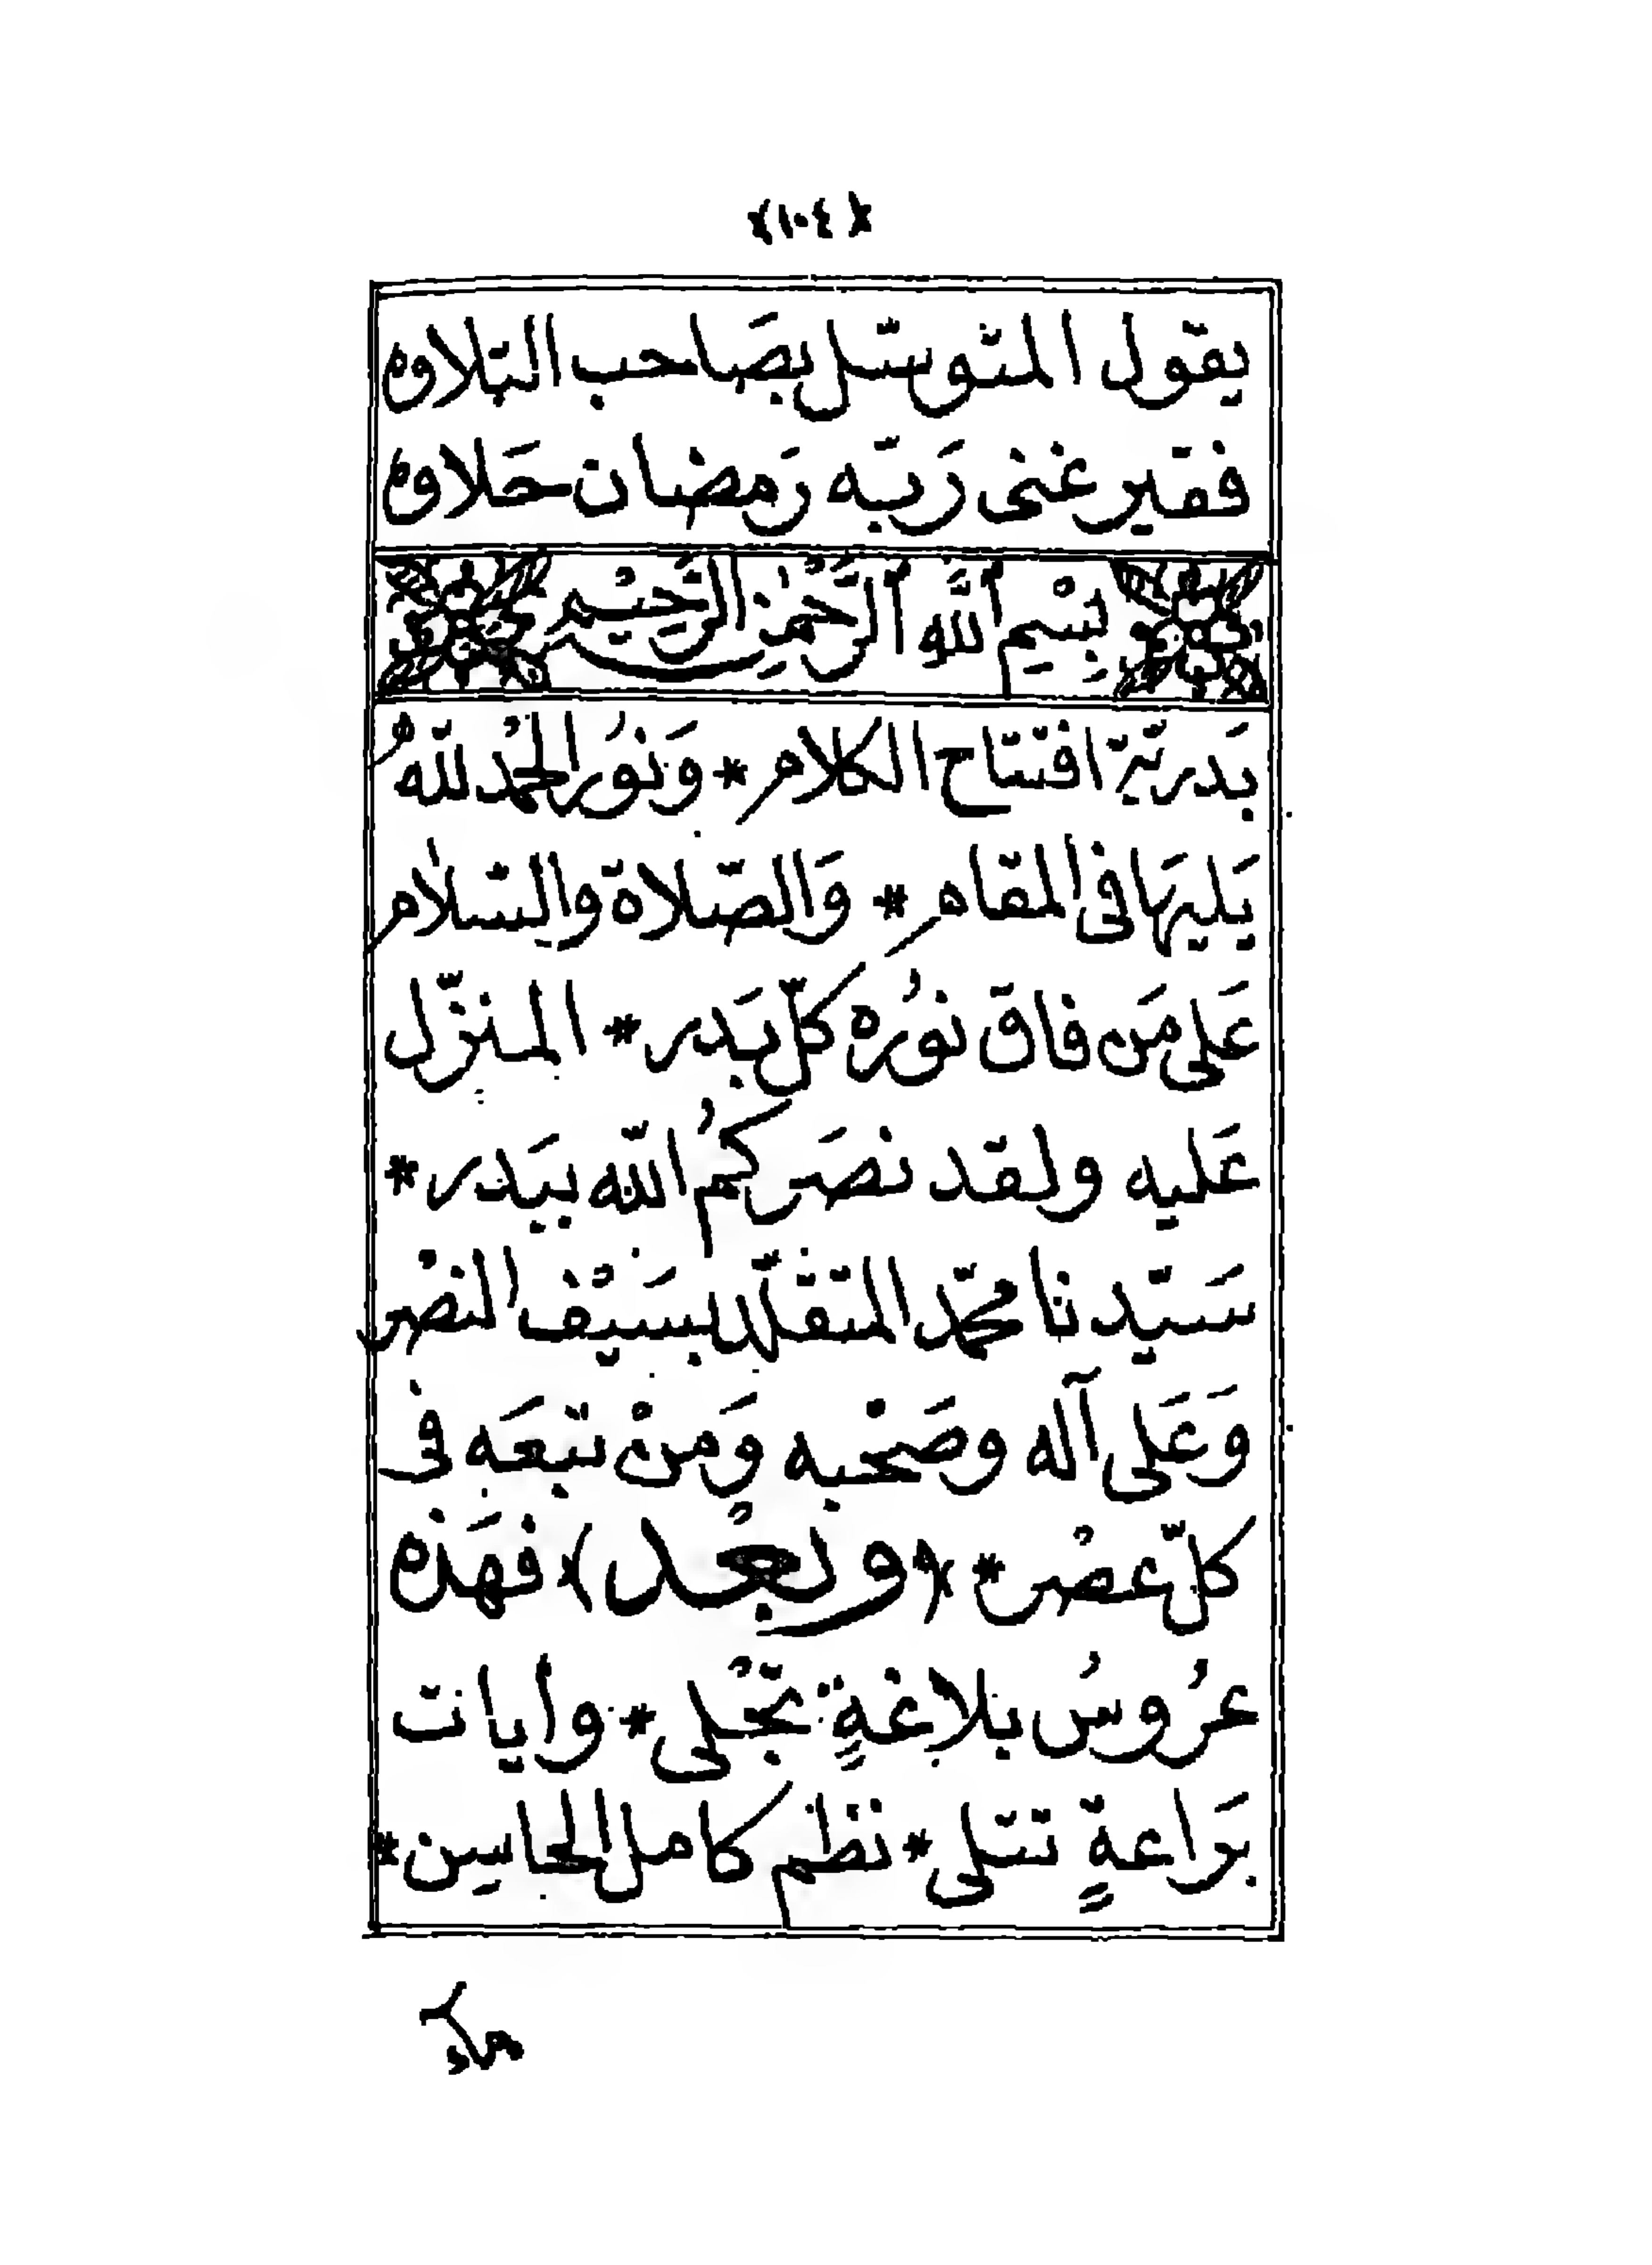 (١٠٤)
يقول المتوسّل بصَاحب التلاوه
فقير غنى رَبّه رَمضان حَلاوه
بِسْمِ اللَّهِ الرَّحْمٰنِ الرَّحِيْمِ
بَدريّة افتتاح الكلام * وَنوُر الحمْد للّهُ
يَليهَا فى المقام * وَالصّلاة والسّلام
عَلى مَن فاق نوُره كلّ بَدر * المنزّل
عَليه ولقد نصَركمُ اللّه ببَدر *
سَيّدنا محمّد المتقلّد بسَيْف النصْر
وَعَلى آله وصَحْبه وَمنْ تبعَه فى
كلّ عصْر * (وبعْد) فهَذه
عرُوسُ بلاغةٍ تجْلى * وأيات
بَراعةٍ تتلى * نظم كامل المحاسِن *